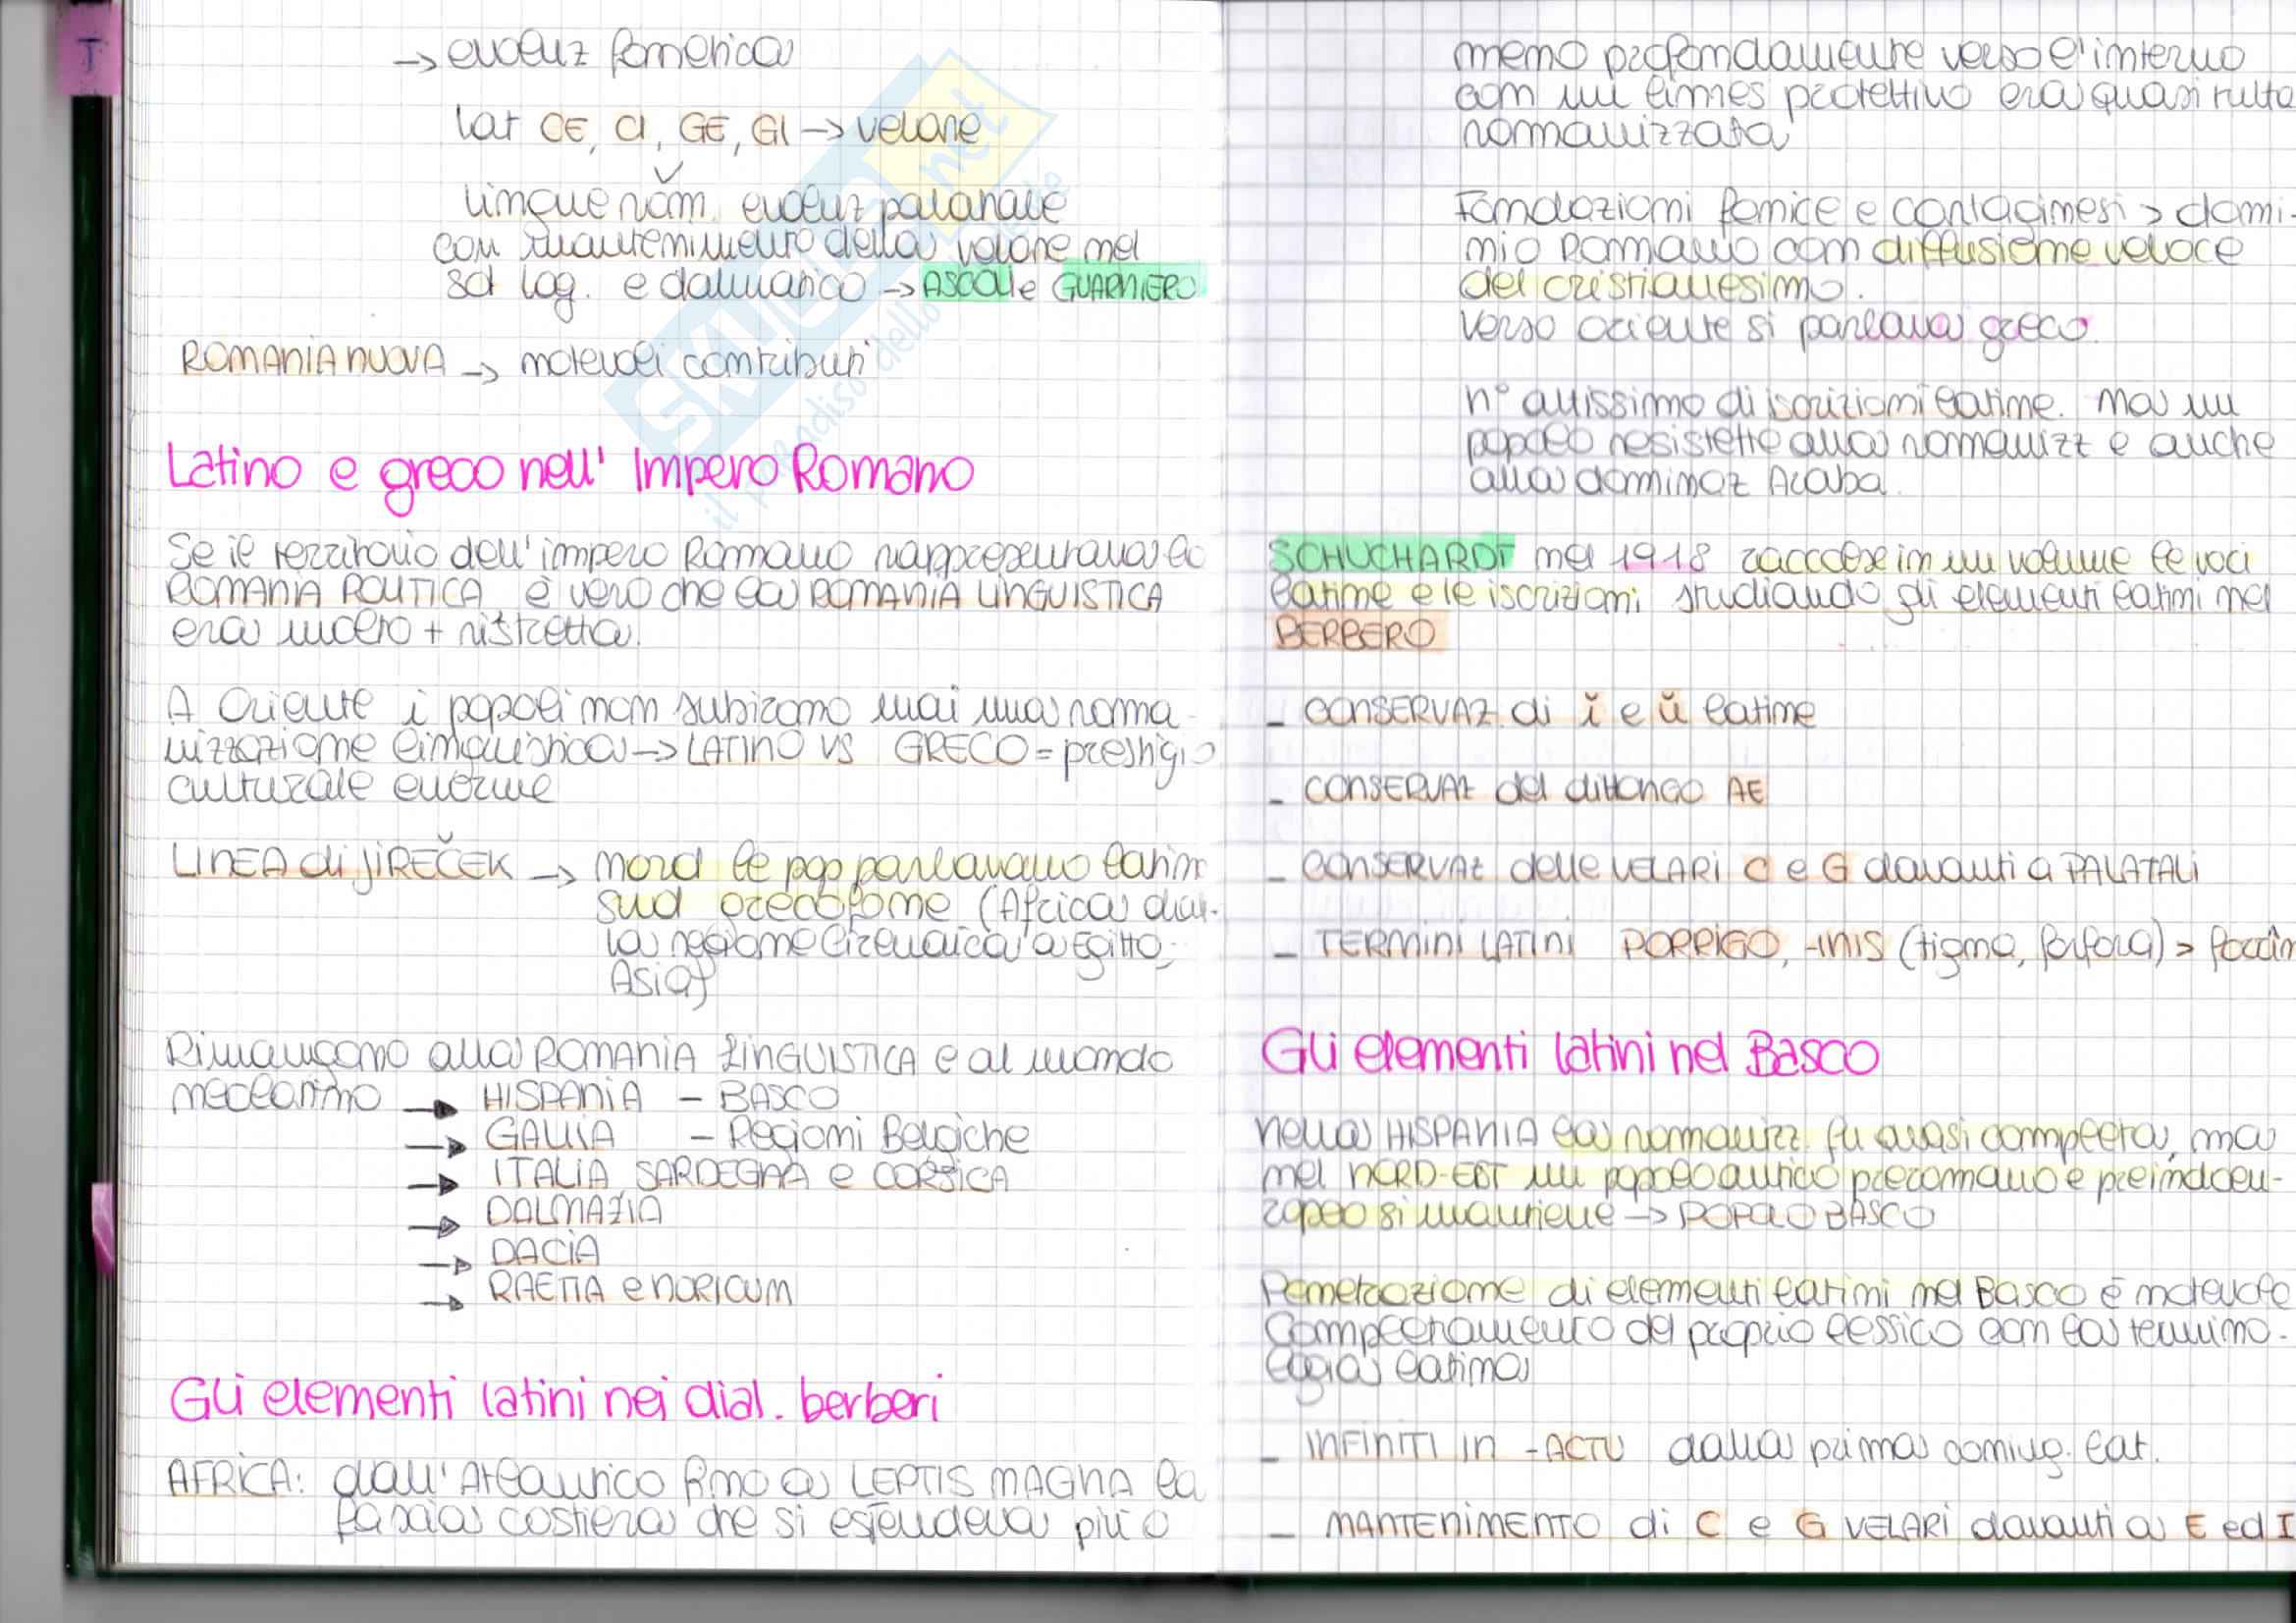 I
→ evoluz fonetica
lat CE, CI, GE, GI → velare
lingue rom. evoluz palatale
con mantenimento della velare nel
sd log. e dalmatico → ASCOLI e GUARNIERO
ROMANIA NUOVA → notevoli contributi
Latino e greco nell' Impero Romano
Se il territorio dell'impero Romano rappresentava la
ROMANIA POLITICA è vero che la ROMANIA LINGUISTICA
era molto + ristretta.
A Oriente i popoli non subirono mai una roma-
nizzazione linguistica → LATINO VS GRECO = prestigio
culturale enorme
LINEA di JIREČEK → nord le pop parlavano latino
sud grecofone (Africa dal-
la regione Cirenaica a Egitto-
Asia)
Rimangono alla ROMANIA LINGUISTICA e al mondo
neolatino → HISPANIA – BASCO
→ GALLIA – Regioni Belgiche
→ ITALIA SARDEGNA e CORSICA
→ DALMAZIA
→ DACIA
→ RAETIA e NORICUM
Gli elementi latini nei dial. berberi
AFRICA: dall'Atlantico fino a LEPTIS MAGNA la
fascia costiera che si estendeva più o
meno profondamente verso l'interno
con un limes protettivo era quasi tutta
romanizzata
Fondazioni fenice e cartaginesi > domi-
nio Romano con diffusione veloce
del cristianesimo.
verso oriente si parlava greco.
n° altissimo di iscrizioni latine. Ma un
popolo resistette alla romanizz e anche
alla dominaz Araba.
SCHUCHARDT nel 1918 raccolse in un volume le voci
latine e le iscrizioni studiando gli elementi latini nel
BERBERO
- CONSERVAZ. di ĭ e ŭ latine
- CONSERVAZ del dittongo AE
- CONSERVAZ delle VELARI C e G davanti a PALATALI
- TERMINI LATINI PORRIGO, -INIS (tigna, forfora) >
Gli elementi latini nel Basco
Nella HISPANIA la romanizz. fu quasi completa, ma
nel NORD-EST un popolo antico preromano e preindoeu-
ropeo si mantiene → POPOLO BASCO
Penetrazione di elementi latini nel Basco è notevole
Completamento del proprio lessico con la termino-
logia latina
- INFINITI in -ACTU dalla prima coniug. lat.
- MANTENIMENTO di C e G VELARI davanti a E ed I
SKUOLA.net
il paradiso dello studente